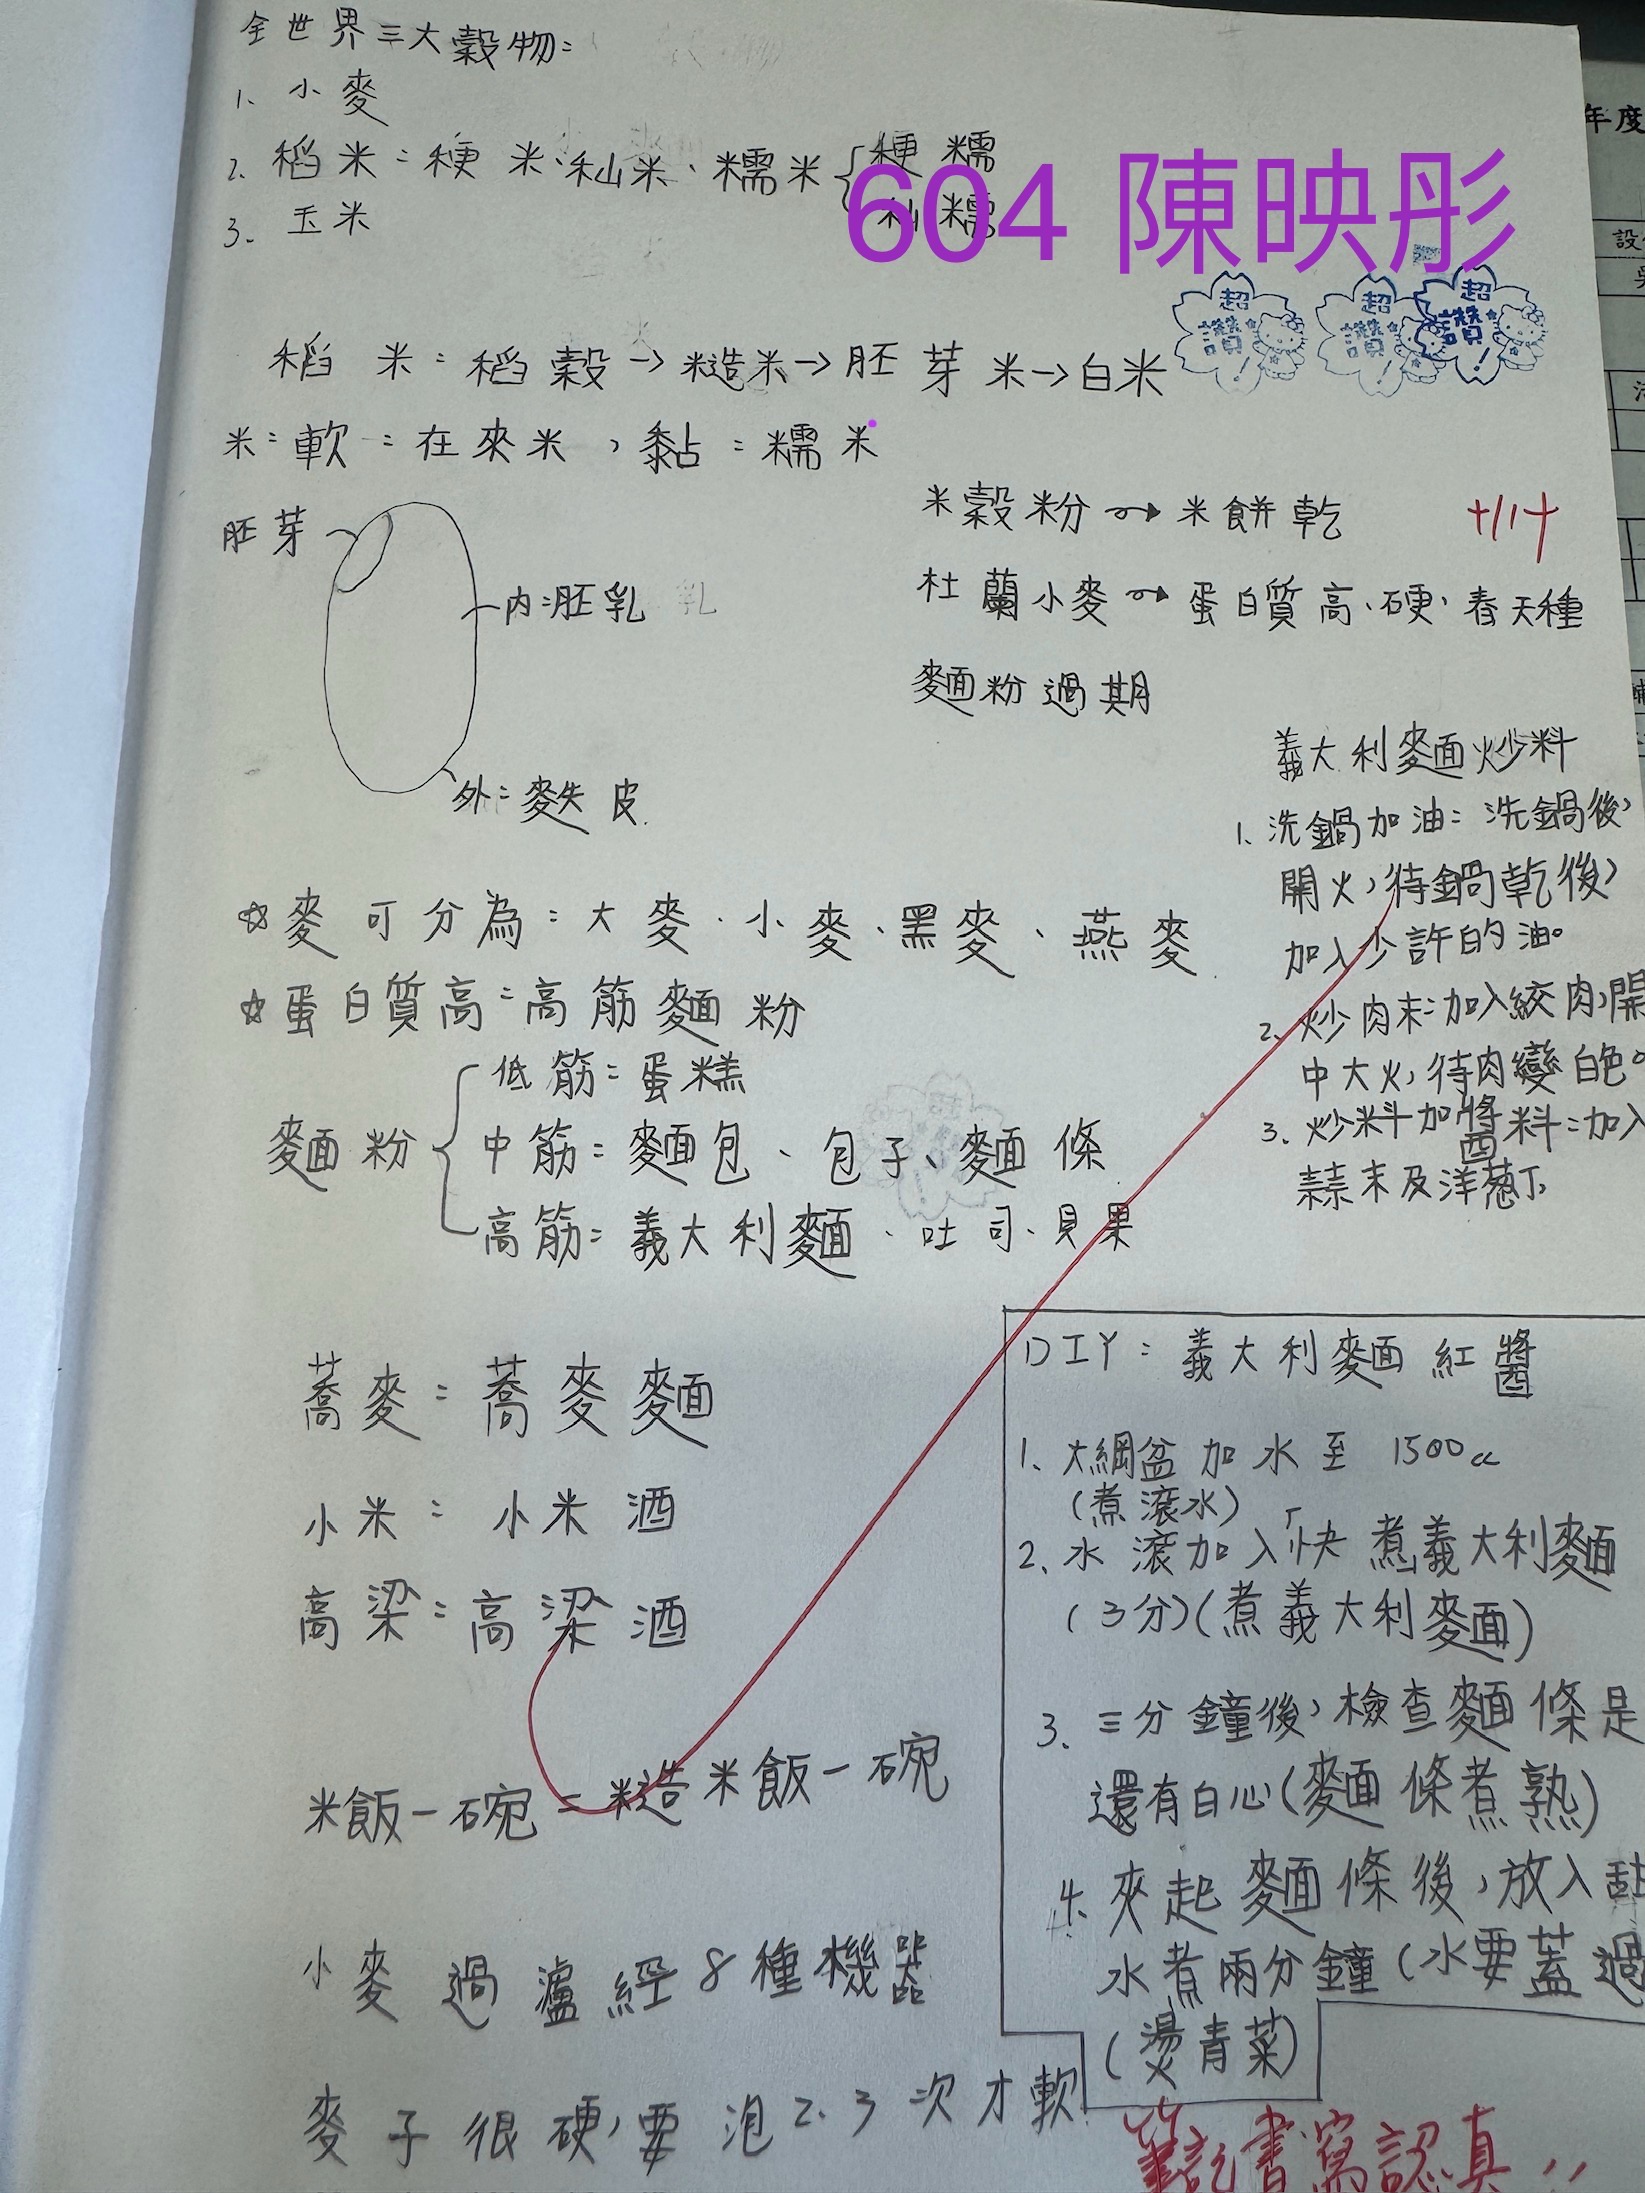 全世界三大穀物:
1、小麥
2、稻米:稉米、秈米、糯米{稉糯
秈糯
3、玉米
604 陳映彤
超讚!
超讚!
超讚!
稻米:稻穀→糙米→胚芽米→白米
米:軟=在來米,黏=糯米
胚芽
內:胚乳
外:麩皮
米穀粉→米餅乾
杜蘭小麥→蛋白質高、硬、春天種
麵粉過期
☆麥可分為:大麥、小麥、黑麥、燕麥
☆蛋白質高=高筋麵粉
麵粉
低筋:蛋糕
中筋:麵包、包子、麵條
高筋:義大利麵、吐司、貝果
蕎麥:蕎麥麵
小米:小米酒
高梁:高梁酒
米飯一碗=糙米飯一碗
小麥過濾經8種機器
麥子很硬,要泡2、3次才軟
義大利麵炒料
1、洗鍋加油:洗鍋後,
開火,待鍋乾後,
加入少許的油。
2、炒肉末:加入絞肉,開
中大火,待肉變白色。
3、炒料加醬料:加入
蒜末及洋蔥丁,
DIY:義大利麵紅醬
1、大綱盆加水至1500cc
(煮滾水)
2、水滾加入「快煮義大利麵
(3分)(煮義大利麵)
3、三分鐘後,檢查麵條是
還有白心(麵條煮熟)
4、夾起麵條後,放入
水煮兩分鐘(水要蓋過
(燙青菜)
筆記書寫認真!!
年度